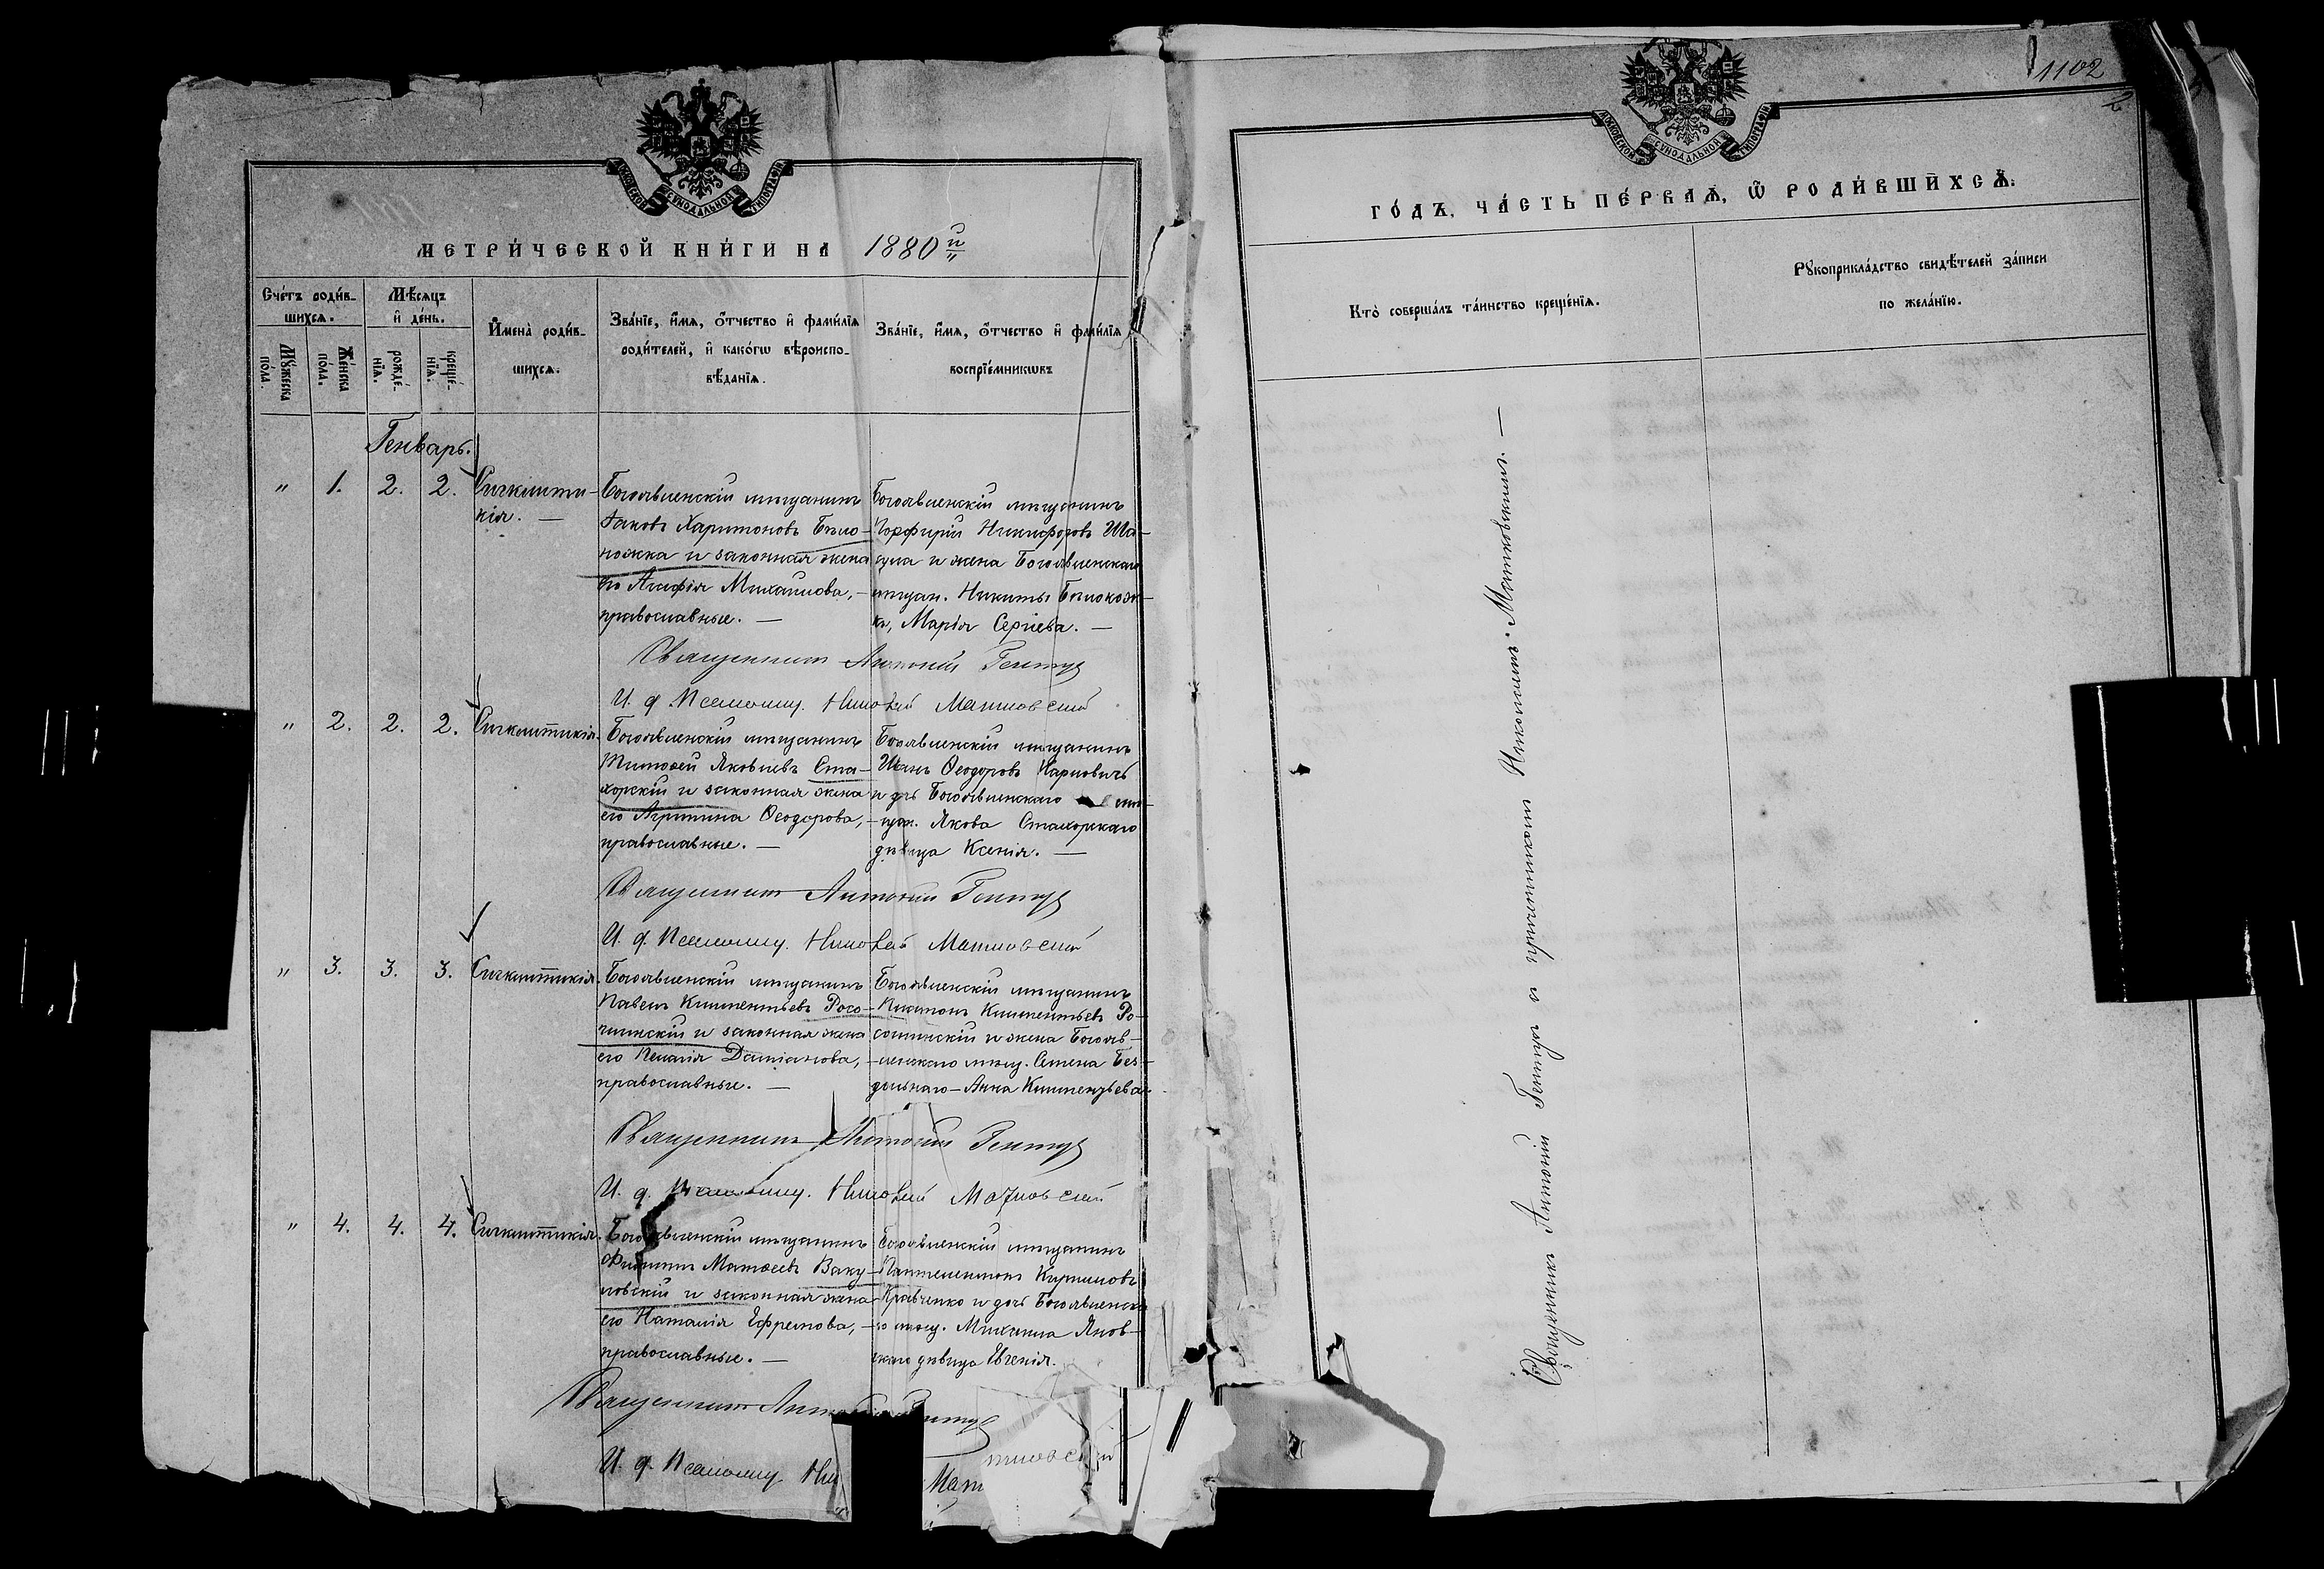 МОСКОВСКОЙ СѴНОДАЛЬНОЙ ТИПОГРАФІИ
МЕТРИ́ЧЕСКОЙ КНИ́ГИ НА 1880й
Сче́тъ роди́в-
шихся.
Мѣ́сяцъ
и҆ де́нь.
И҆мена̀ роди́в-
шихся.
Зва́нїе, и҆́мя, ѻ҆́тчество и҆ фами́лїя
роди́телей, и҆ како́гѡ вѣроиспо-
вѣ́данїя.
Зва́нїе, и҆́мя, ѻ҆́тчество и҆ фами́лїя
воспрїе́мникѡвъ
Мꙋ́жеска
по́ла.
Же́нска
по́ла.
рожде́-
нїя.
креще́-
нїя.
Генварь.
" 1. 2. 2.
Сигклити-
кія. —
Богоявленскій мѣщанинъ
Іаковъ Харитоновъ Бѣло-
ножка и законная жена
его Агафія Михаилова, —
православные. —
Богоявленскій мѣщанинъ
Порфирій Никифоровъ Ша-
гула и жена Богоявленскаго
мѣщан. Никиты
Марія Сергіева. —
Священникъ Антоній Гентуг
И. д. Псаломщ. Николай Матковскій
" 2. 2. 2. Сигклитикія.
Богоявленскій мѣщанинъ
Тимоѳей Яковлевъ Ста-
хорскій и законная жена
его Агрипина Ѳеодорова, —
православные. —
Богоявленскій мѣщанинъ
Иванъ Ѳеодоровъ Карповичъ
и дчь Богоявленскаго мѣ-
щан. Якова Стахорскаго
дѣвица Ксенія. —
Священникъ Антоній Гентуг
И. д. Псаломщ. Николай Матковскій
" 3. 3. 3. Сигклитикія.
Богоявленскій мѣщанинъ
Павелъ Климентьевъ Росо-
линскій и законная жена
его Пелагія Даміанова, —
православные. —
Богоявленскій мѣщанинъ
Климентьевъ Ро-
солинскій и жена Богояв-
ленскаго мѣщ. Семена Без-
дольнаго — Анна Климентьева
Священникъ Антоній Гентуг
И. д. Псаломщ. Николай Матковскій
" 4. 4. 4. Сигклитикія.
Богоявленскій мѣщанинъ
Филиппъ Матѳеевъ Ваку-
ловскій и законная жена
его Наталія Ефремова, —
православные. —
Богоявленскій мѣщанинъ
Пантелеимонъ Кириловъ
Кравченко и дочь Богоявленска-
го мѣщ. Михаила Янов-
скаго дѣвица Евгенія.
Священникъ Антоній Гентуг
И. д. Псаломщ. Ни
Мат
1102
МОСКОВСКОЙ СѴНОДАЛЬНОЙ ТИПОГРАФІИ
ГО́ДЪ, ЧА́СТЬ ПЕ́РВАЯ, Ѽ РОДИ́ВШИХСЯ.
Кто̀ соверша́лъ та́инство креще́нїя.
Рꙋкоприкла́дство свидѣ́телей за́писи
по жела́нїю.
Священникъ Антоній Гентуг с причетникомъ Николаемъ Матковскимъ. —